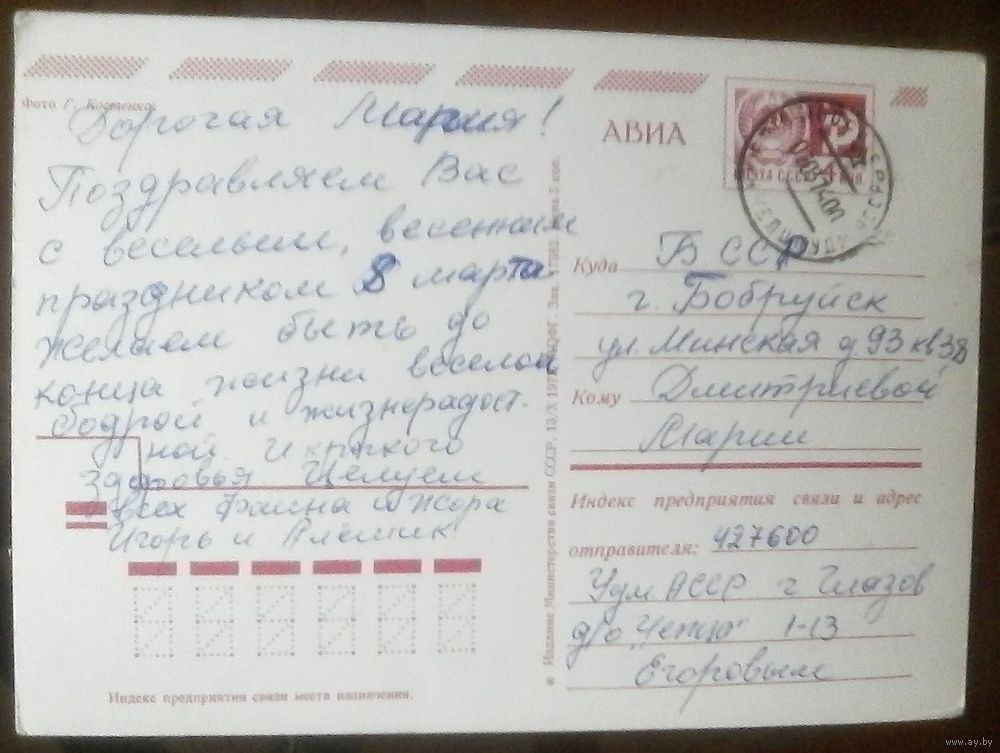 Фото Г. Костенко
Дорогая Мария!
Поздравляем Вас
с веселым, весенним
праздником 8 марта.
Желаем быть до
конца жизни веселой
бодрой и жизнерадост-
ной. И крепкого
здоровья Целуем
всех Фаина и Жора
Игорь и Алёшик.
Индекс предприятия связи места назначения.
Издание Министерства связи СССР. 13/X 197
Цена 5 коп.
АВИА
ПОЧТА СССР
Куда БССР
г. Бобруйск
ул. Минская д 93 кв 38
Кому Дмитриевой
Марии
Индекс предприятия связи и адрес
отправителя: 427600
Удм АССР г Глазов
д/о "Чепца" 1-13
Егоровым
www.ay.by